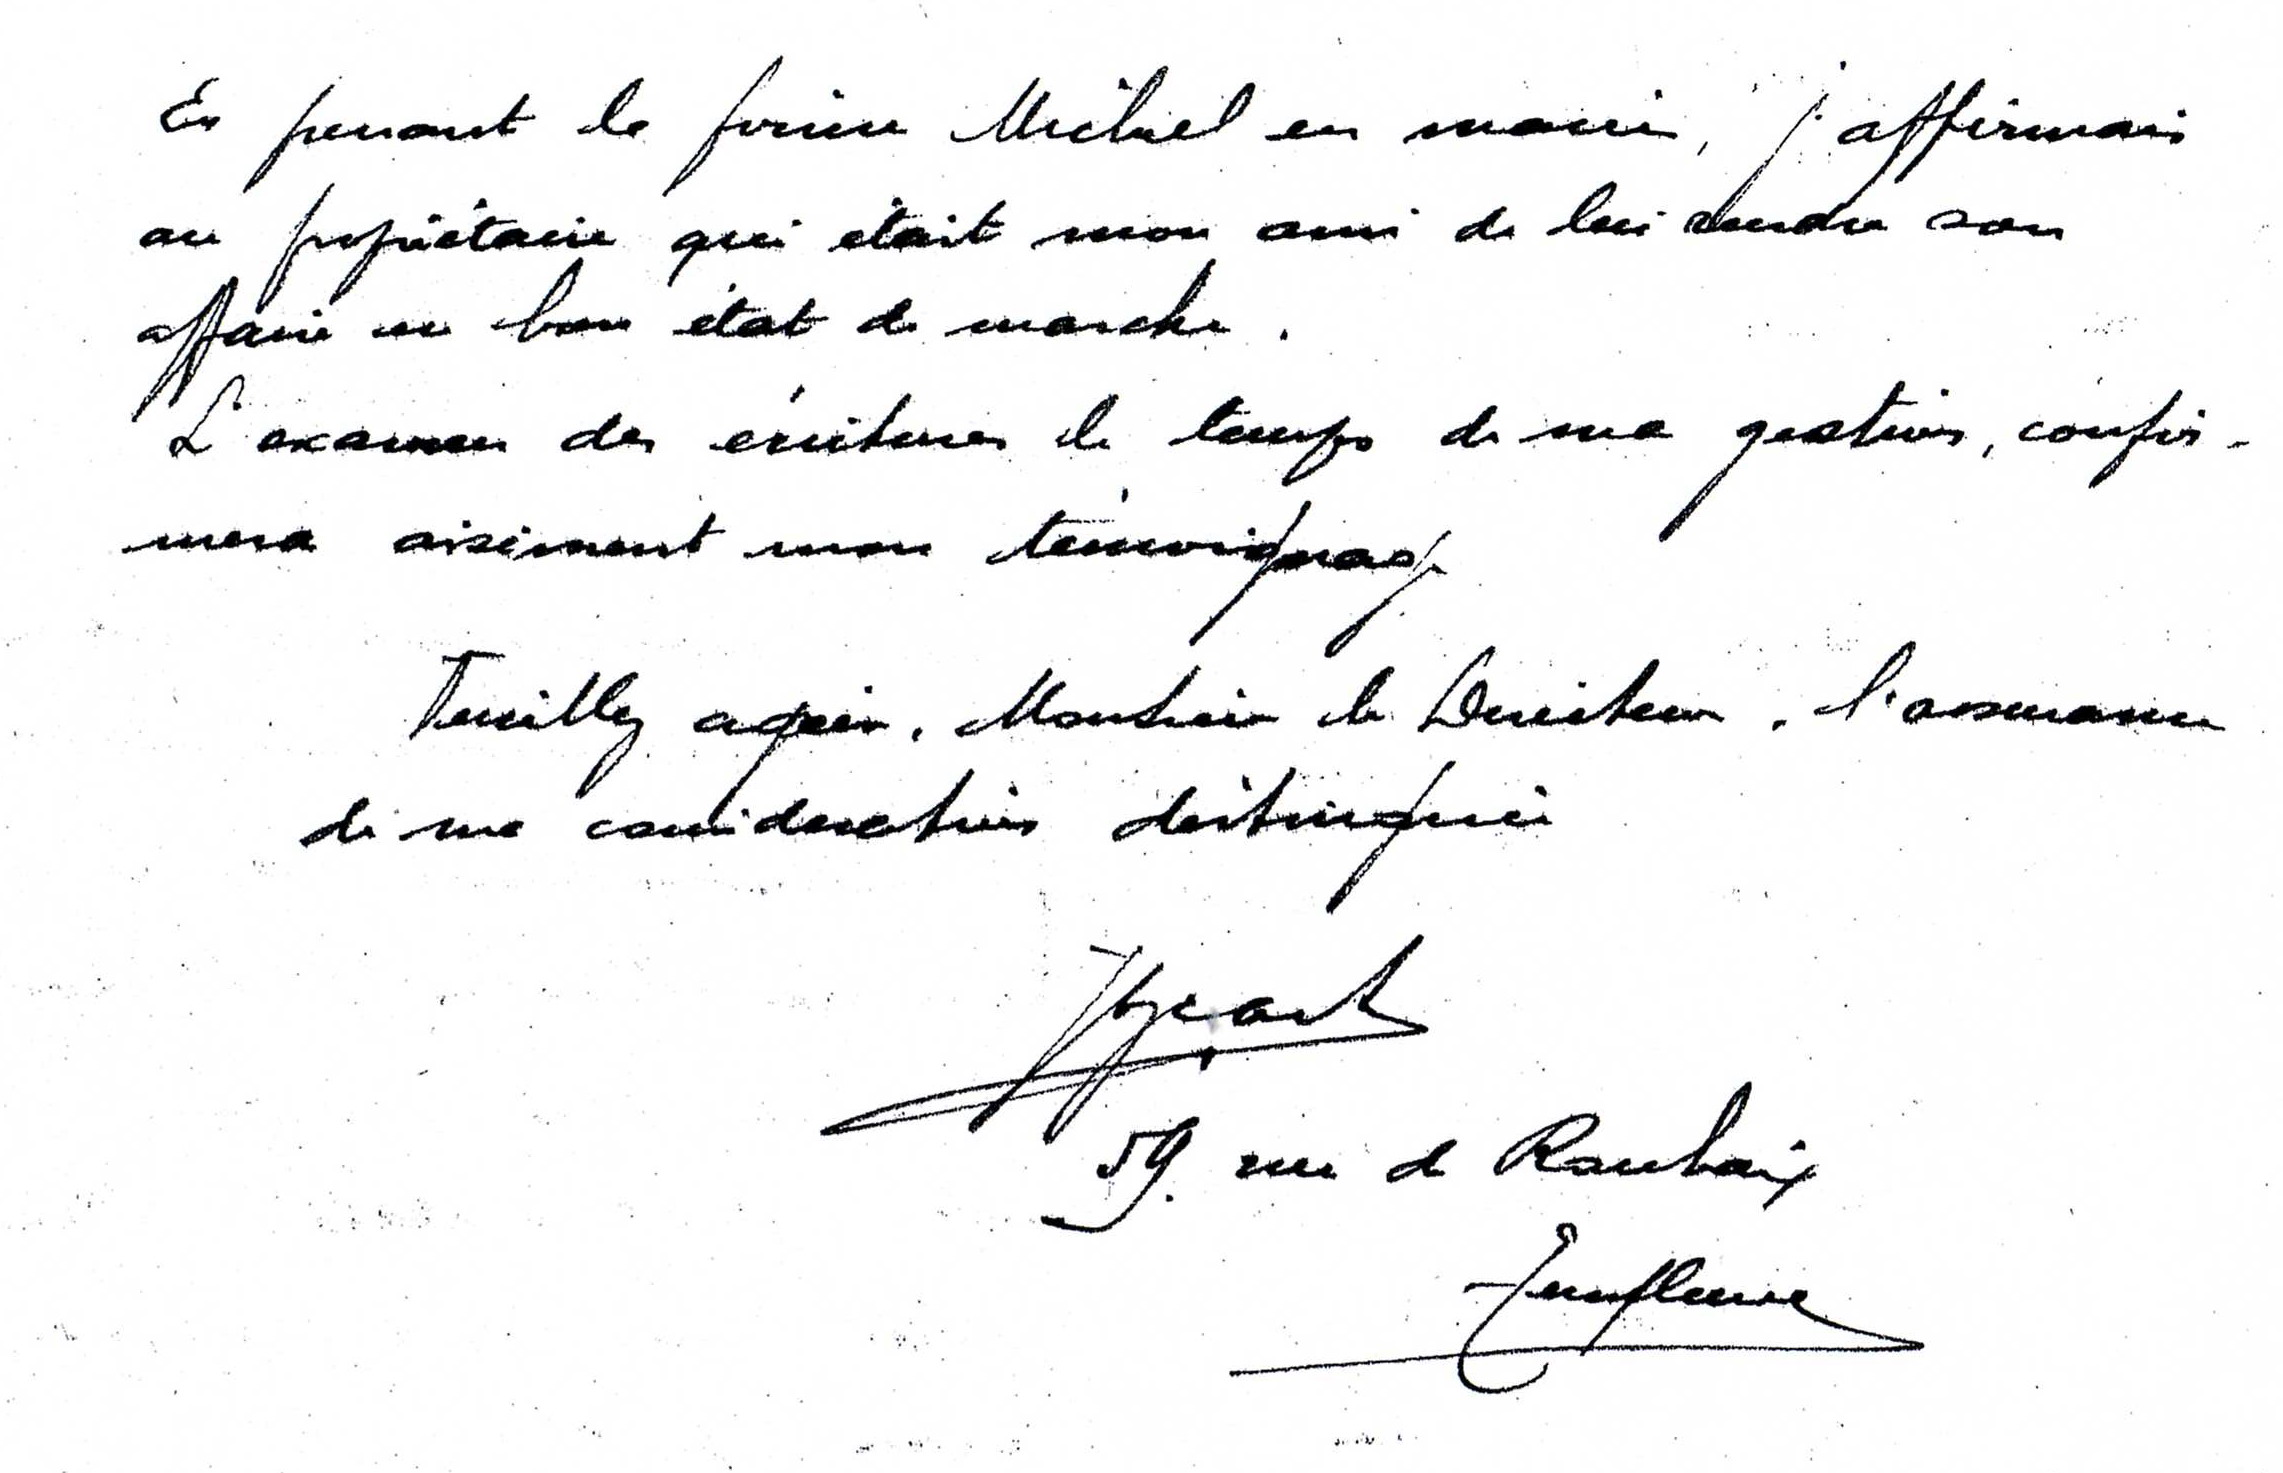 En prenant la firme Michel en main, j'affirmais
au propriétaire qui était mon ami de lui rendre son
affaire en bon état de marche.
L'examen des écritures le temps de ma gestion, confir-
mera aisément mon témoignage
Veuillez agréer, Monsieur le Directeur, l'assurance
de ma considération distinguée
59. rue de Roubaix
Templeuve